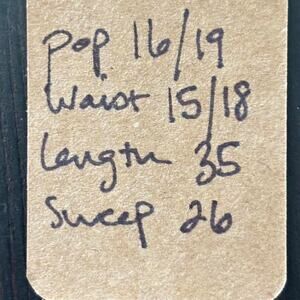 pop 16/19
Waist 15/18
Length 35
Sweep 26